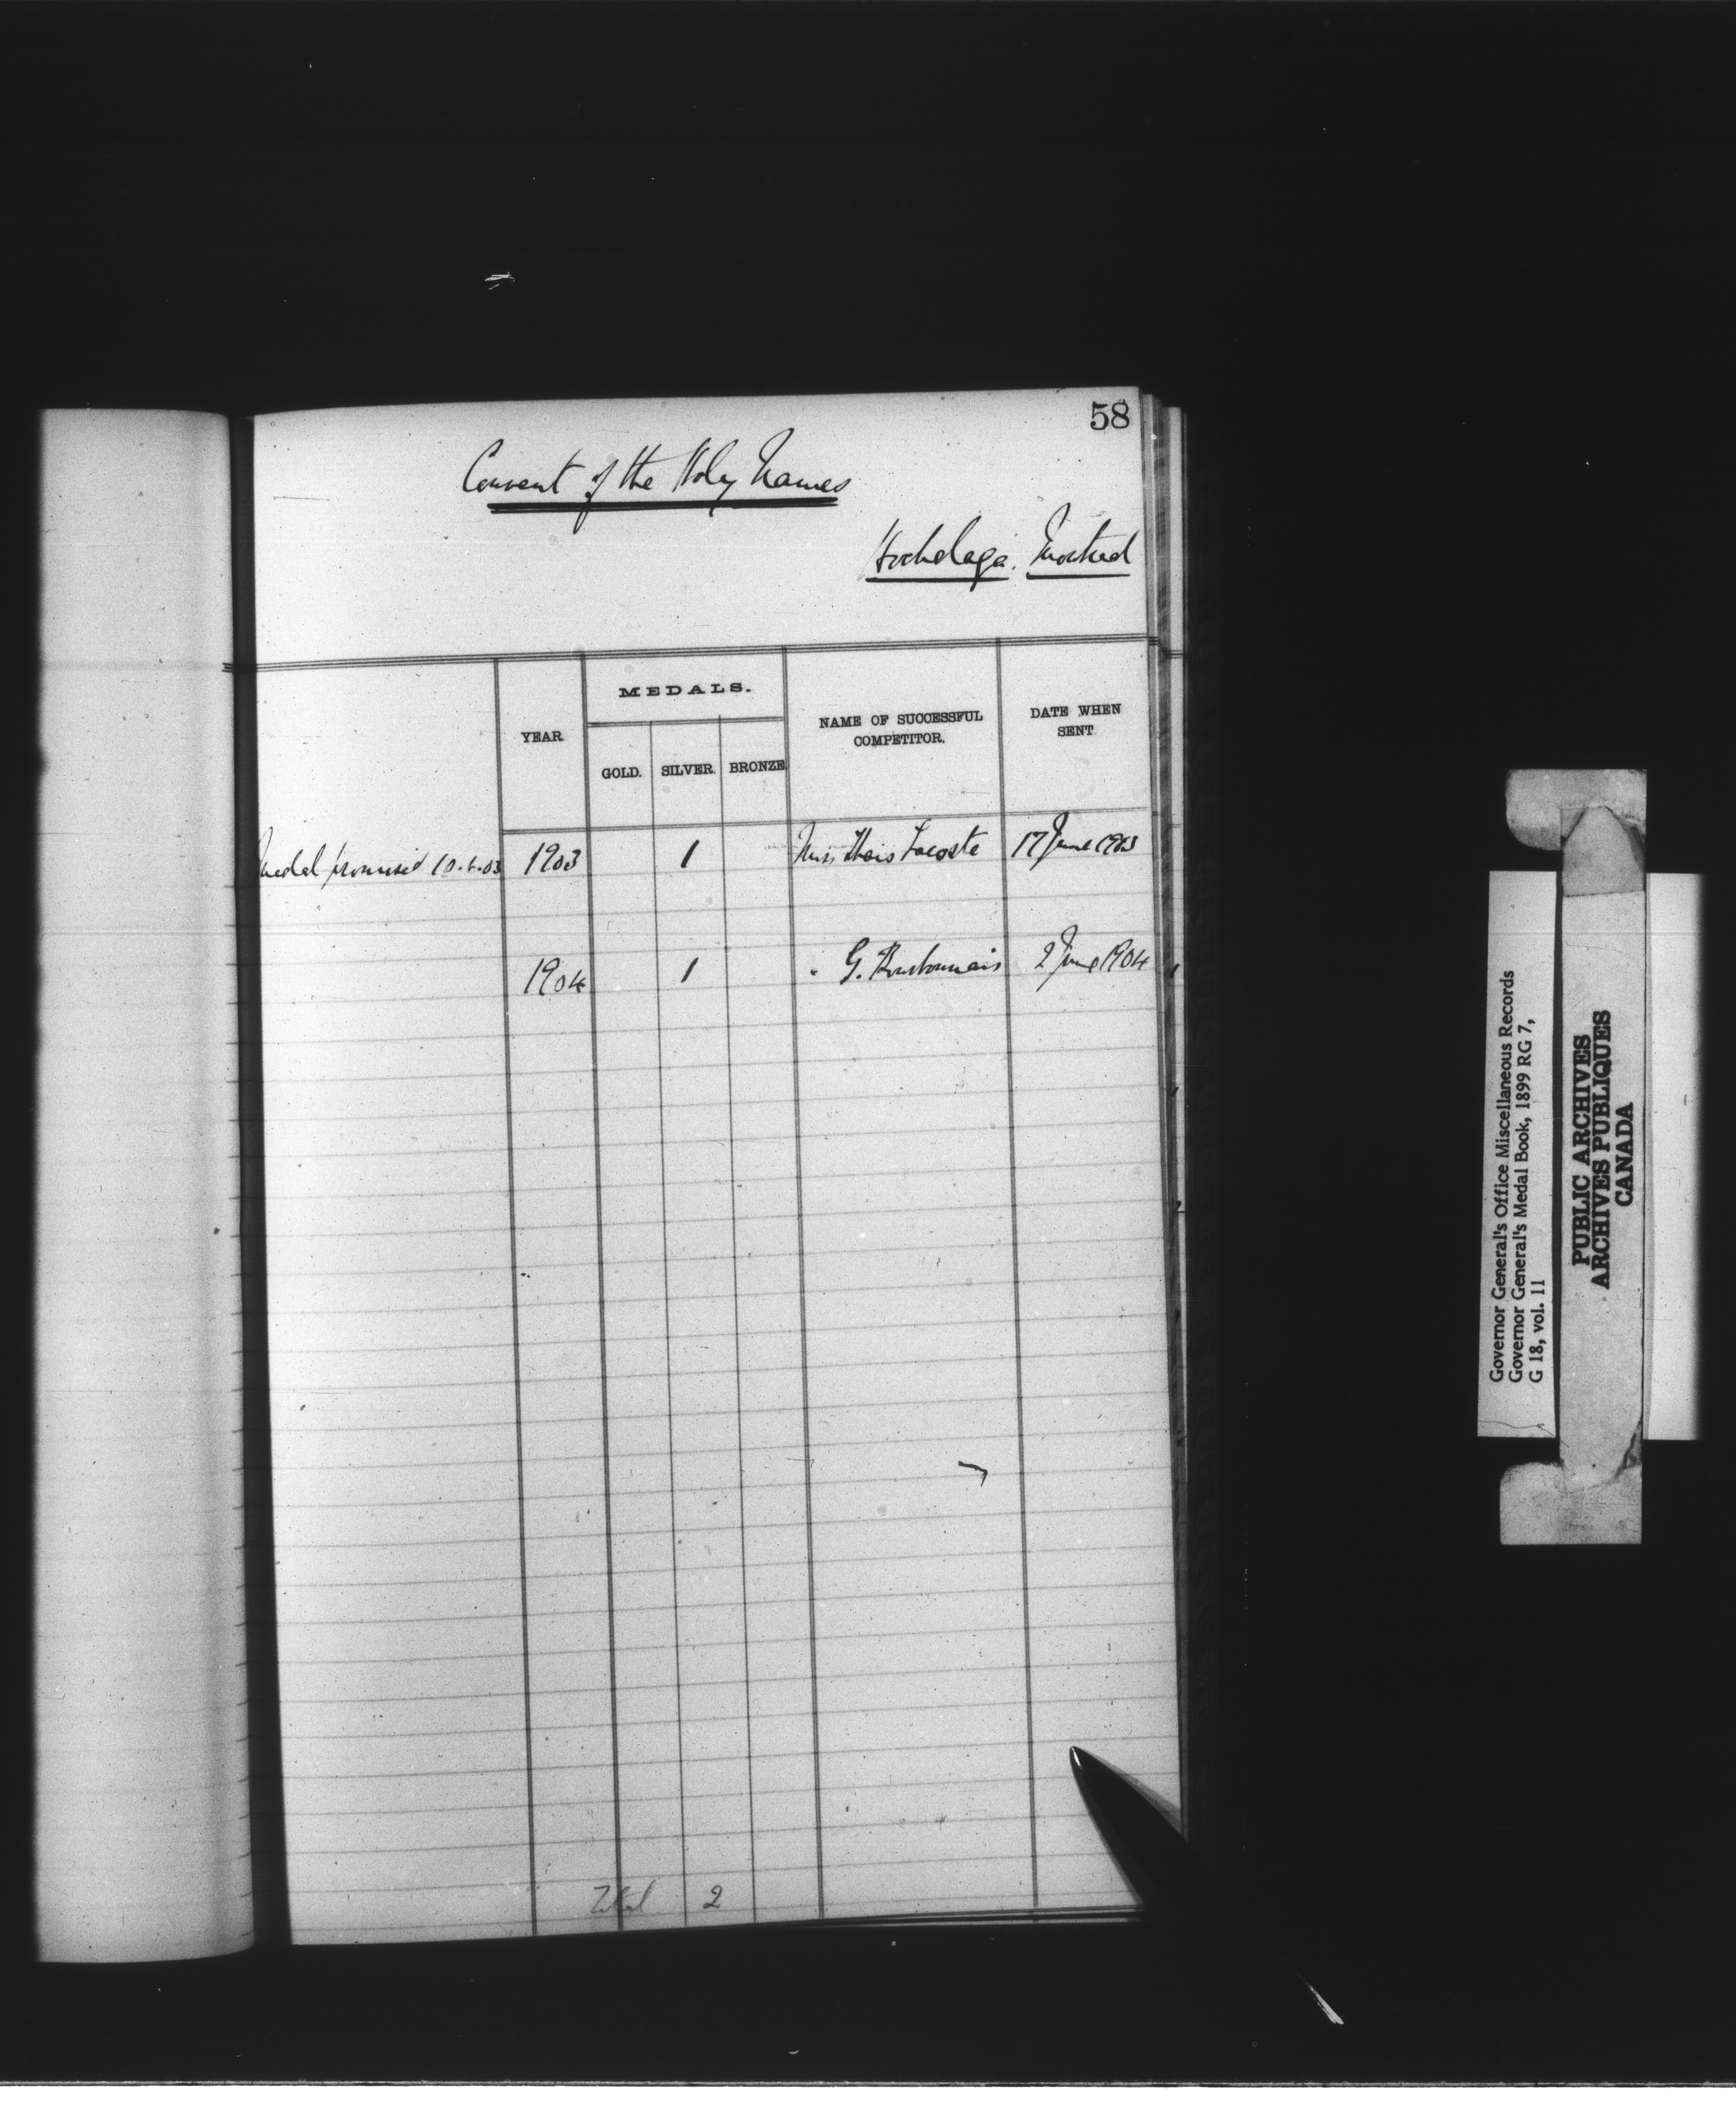 58
Convent of the Holy Names
Hochelaga. Montreal
YEAR
MEDALS.
GOLD. SILVER. BRONZE
NAME OF SUCCESSFUL
COMPETITOR.
DATE WHEN
SENT
Medal promised 10.6.03 1903 1 Miss Thais Lacoste 17 June 1903
1904 1 " G. Bourbonnais 2 June 1904
Total 2
Governor General's Office Miscellaneous Records
Governor General's Medal Book, 1899 RG 7,
G 18, vol. 11
PUBLIC ARCHIVES
ARCHIVES PUBLIQUES
CANADA